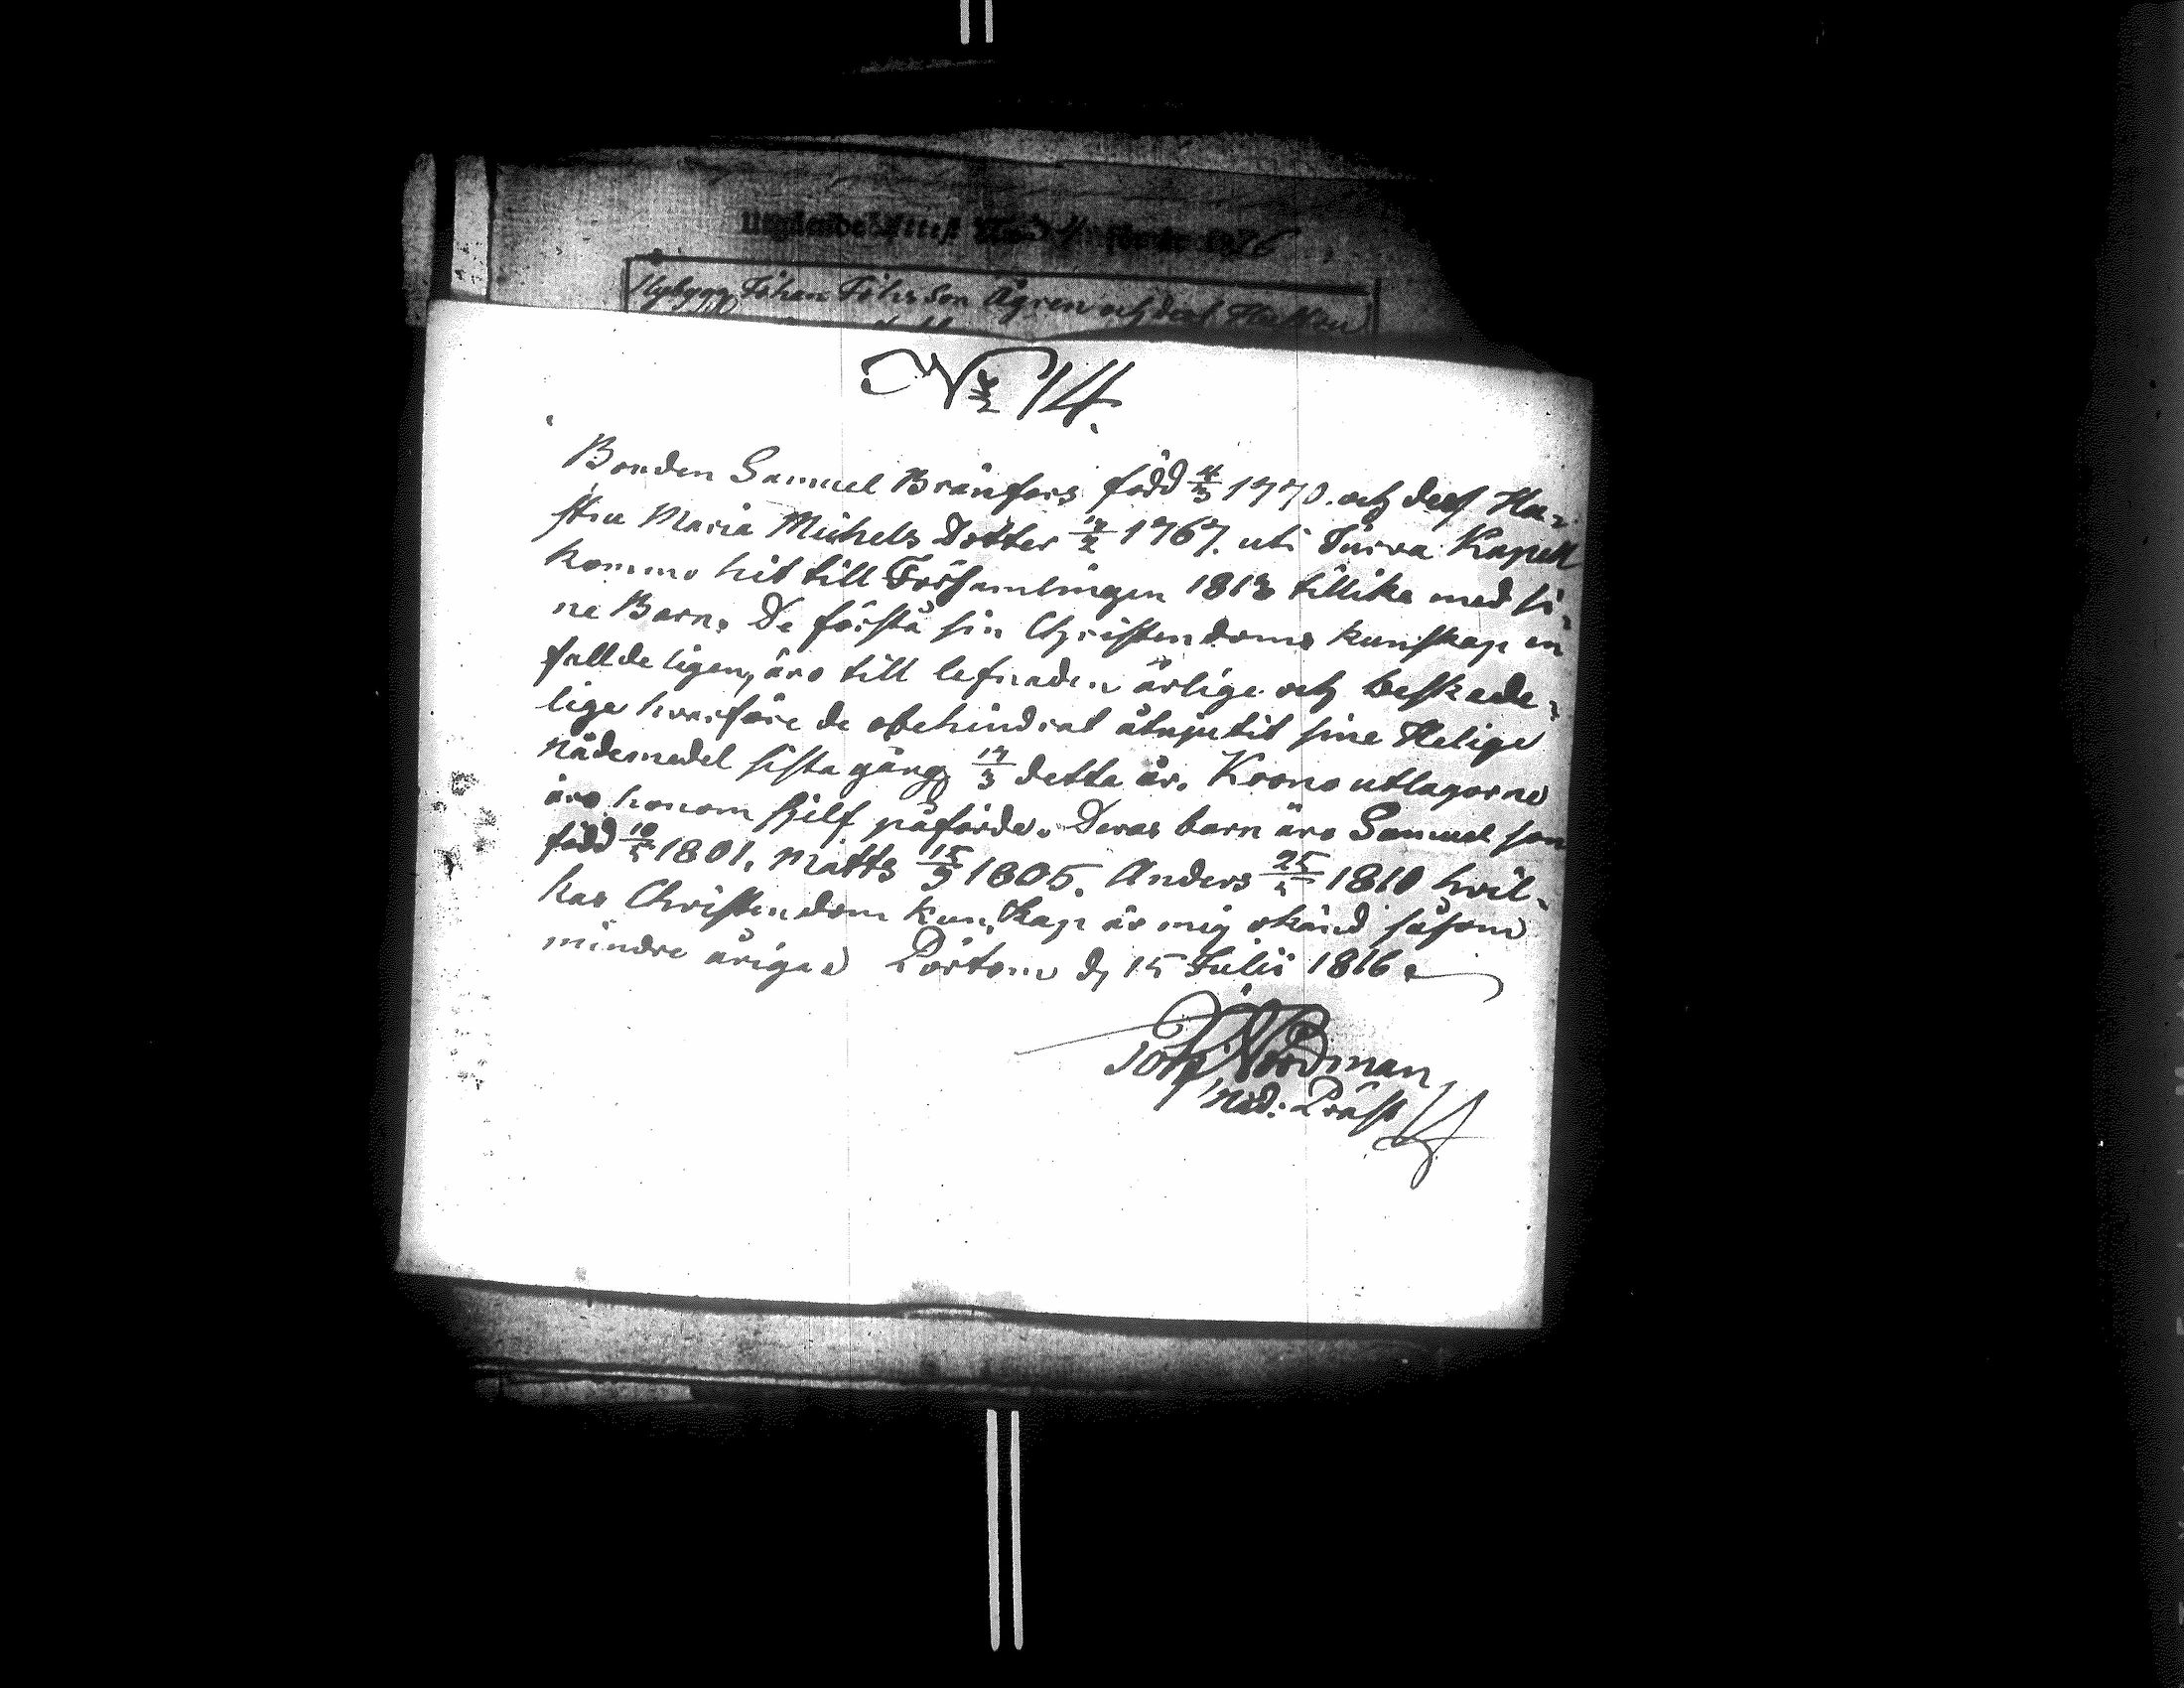 Utgående Attest för år 1876
Nybygg Johan Johsson Ågren och dess Hustru
No 14.
Bonden Samuel Bränfors född 4/3 1770. och dess Hu-
stru Maria Michels Dotter 17/2 1767. uti Jurva Kapell
kommo hit till Församlingen 1813 tillika med si-
ne Barn. De förstå sin Christendoms kunskap en
falldeligen, äro till lefnaden ärlige och beskede-
lige hvarföre de obehindrat åtnjutit sine Helige
nådemedel sista gång 17/3 detta år. Krono utlagorne
äro honom sjelf påförde. Deras barn äro Samuel son
född 10/5 1801. Matts 15/9 1805. Anders 25/5 1810 hvil-
kas Christendom kunskap är mig okänd såsom
mindre åriga Pörtom d. 15 Julii 1816
Joh Nordman
Nåd. Präst